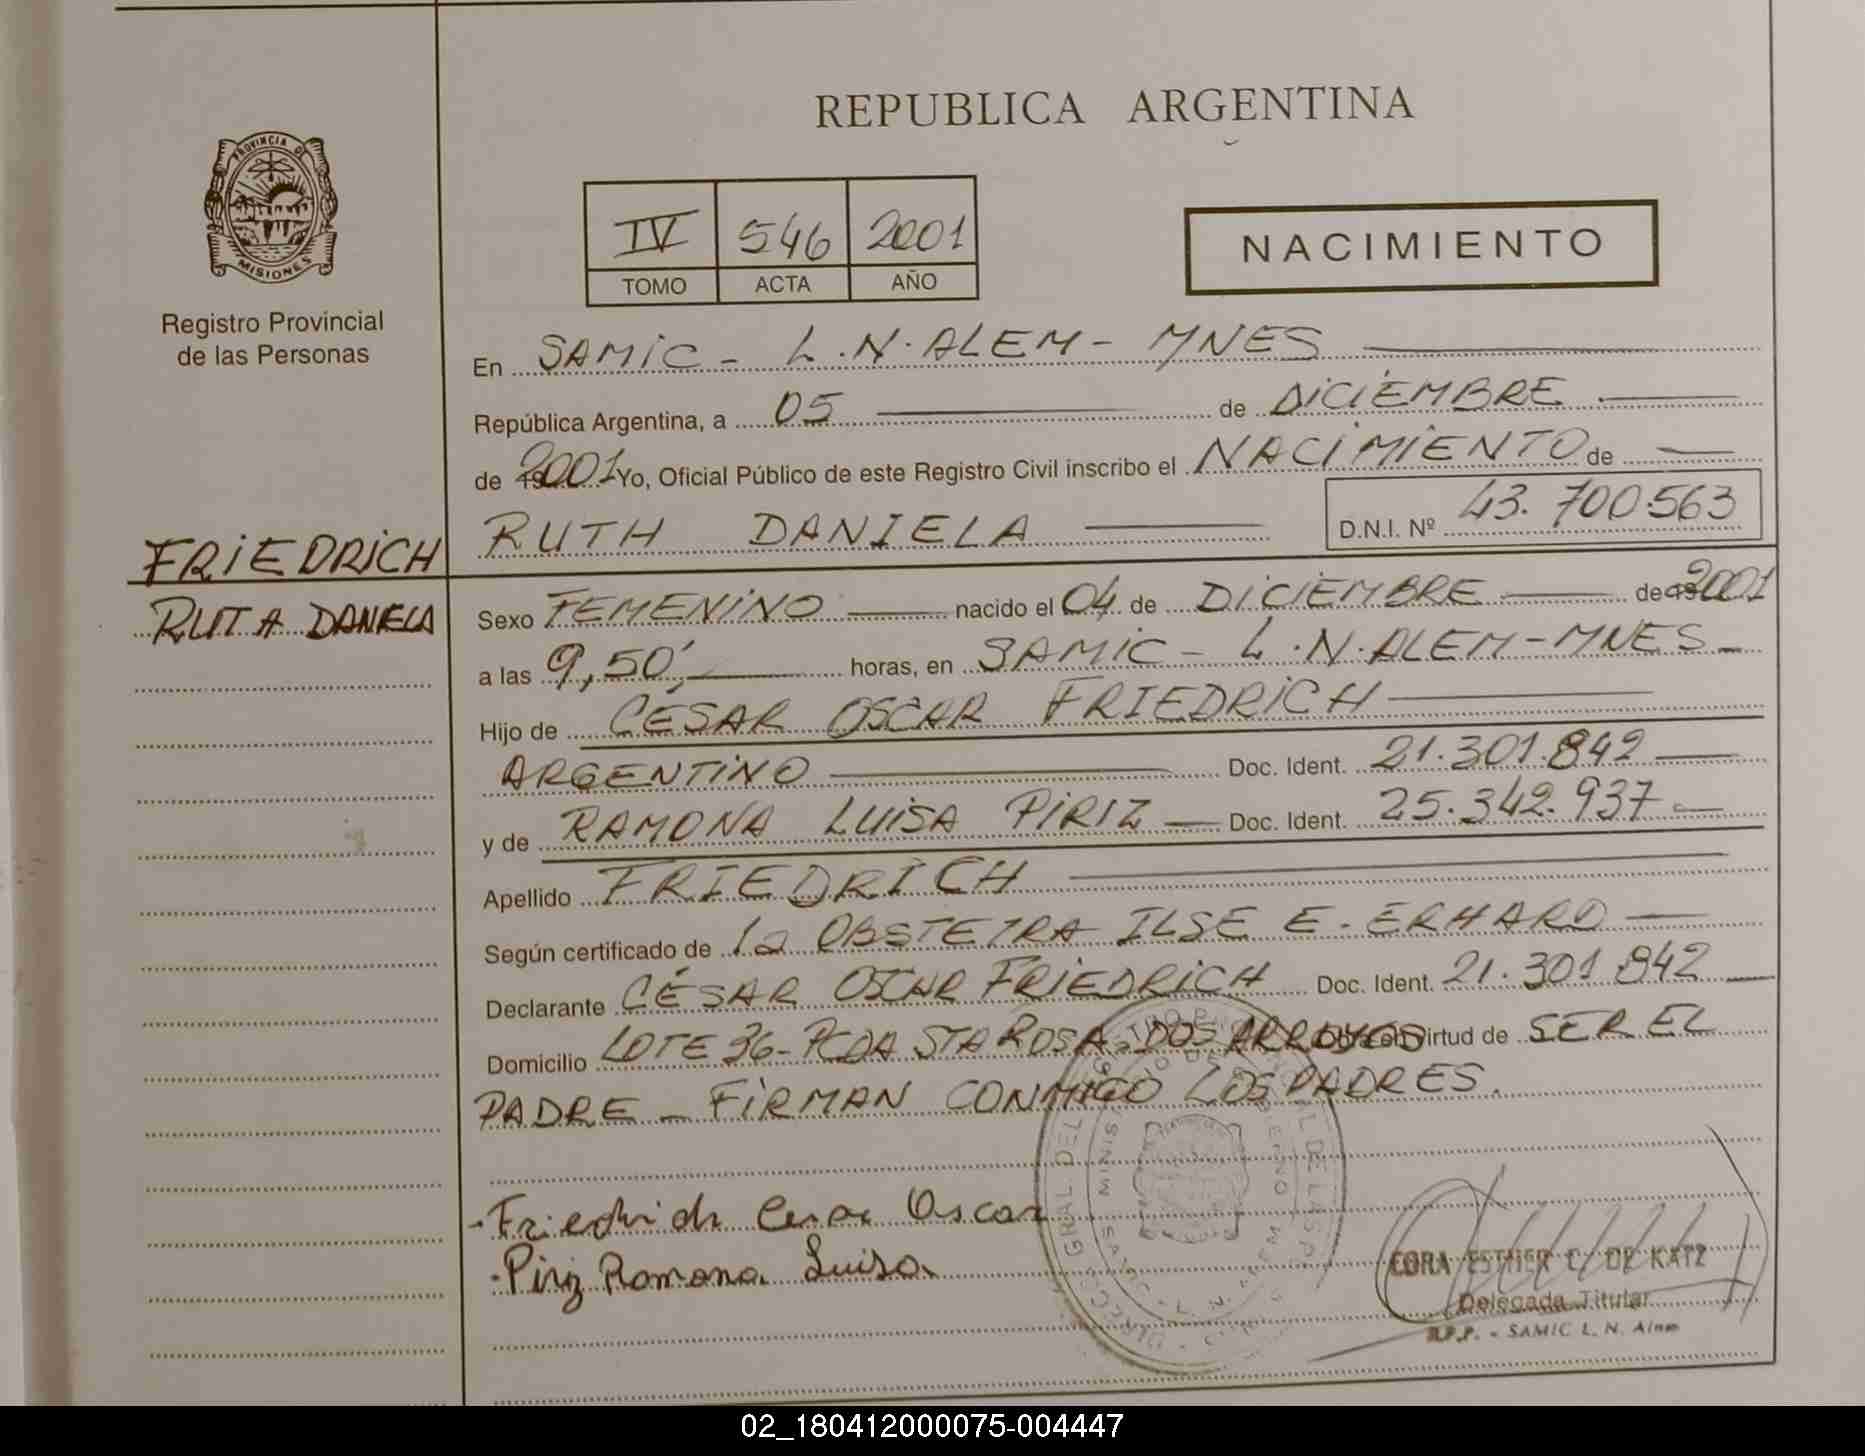 REPUBLICA ARGENTINA
PROVINCIA DE
MISIONES
Registro Provincial
de las Personas
IV 546 2001
TOMO ACTA AÑO
NACIMIENTO
En SAMIC - L.N. ALEM - MNES
República Argentina, a 05 de DICIEMBRE
de 2001 Yo, Oficial Público de este Registro Civil inscribo el NACIMIENTO de
RUTH DANIELA D.N.I. Nº 43.700.563
FRIEDRICH
RUTA DANIELA
Sexo FEMENINO nacido el 04 de DICIEMBRE de 2001
a las 9,50', horas, en SAMIC - L.N. ALEM - MNES -
Hijo de CÉSAR OSCAR FRIEDRICH
ARGENTINO Doc. Ident. 21.301.842
y de RAMONA LUISA PIRIZ Doc. Ident. 25.342.937
Apellido FRIEDRICH
Según certificado de la OBSTETRA ILSE E. ERHARD
Declarante CÉSAR OSCAR FRIEDRICH Doc. Ident. 21.301.842
Domicilio LOTE 36 - PCDA STA ROSA - DOS ARROYOS virtud de SER EL
PADRE - FIRMAN CONMIGO LOS PADRES.
- Friedrich Cesar Oscar
- Piriz Ramona Luisa
CORA ESTHER C. DE KATZ
Delegada Titular
R.P.P. - SAMIC L. N. Alem
02_180412000075-004447